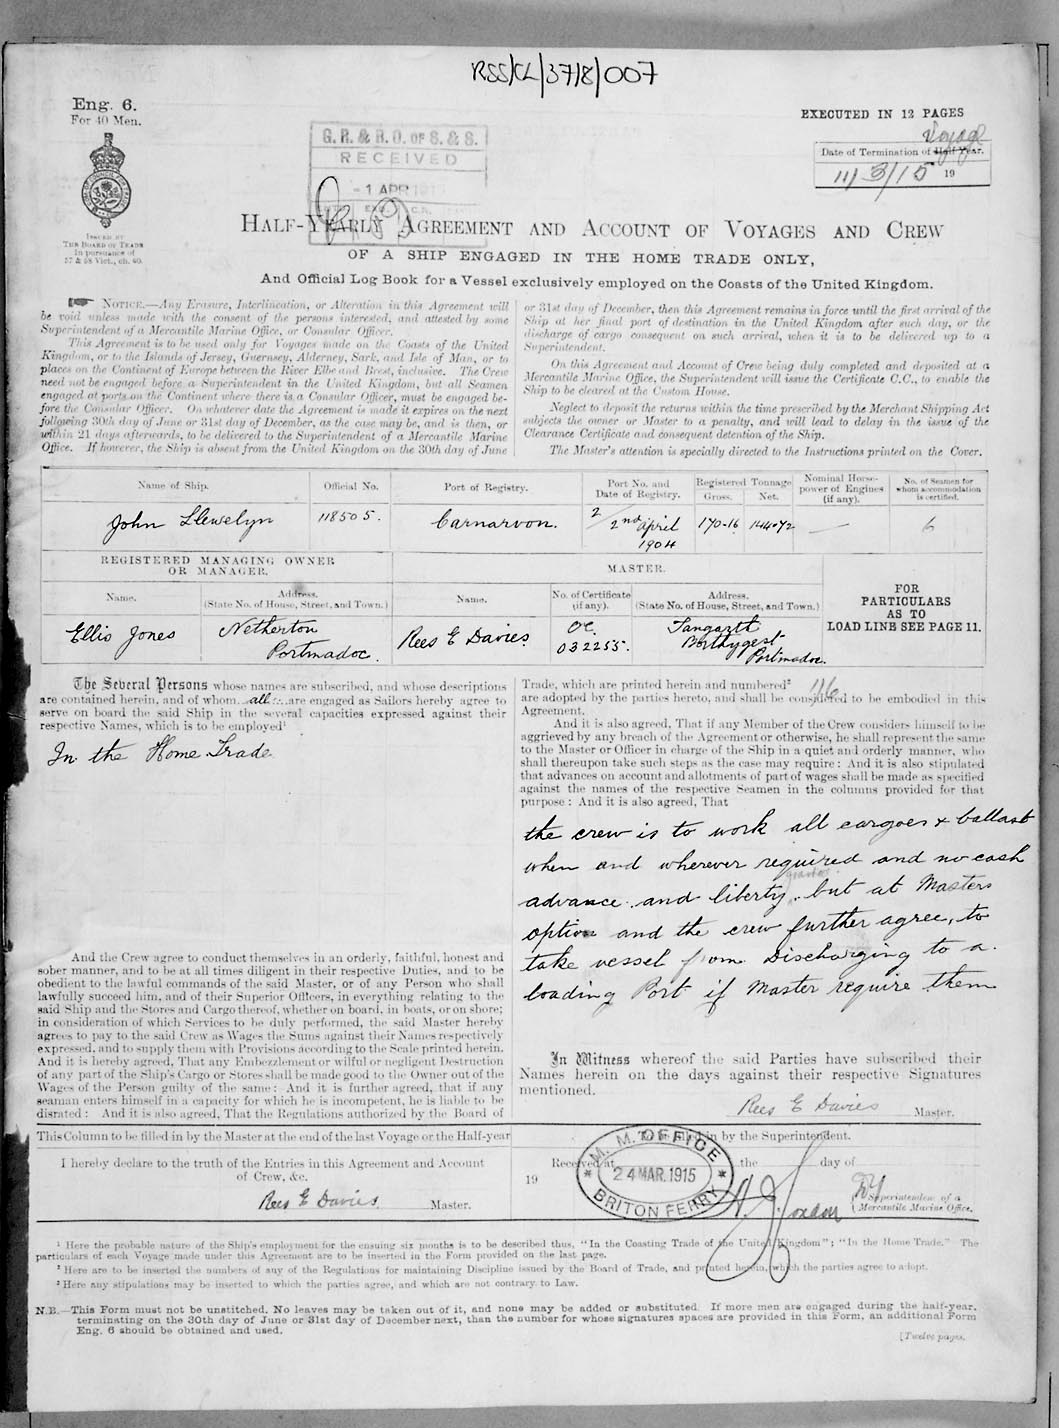 RSS/CL/37/8/007
Eng. 6.
For 40 Men.
ISSUED BY
THE BOARD OF TRADE
In pursuance of
57 & 58 Vict., ch. 60.
G. R. & R. O. OF S. & S.
RECEIVED
- 1 APR
EXECUTED IN 12 PAGES
Voyage
Date of Termination of Half Year.
11/3/15 19
HALF-YEARLY AGREEMENT AND ACCOUNT OF VOYAGES AND CREW
OF A SHIP ENGAGED IN THE HOME TRADE ONLY,
And Official Log Book for a Vessel exclusively employed on the Coasts of the United Kingdom.
NOTICE.—Any Erasure, Interlineation, or Alteration in this Agreement will
be void unless made with the consent of the persons interested, and attested by some
Superintendent of a Mercantile Marine Office, or Consular Officer.
This Agreement is to be used only for Voyages made on the Coasts of the United
Kingdom, or to the Islands of Jersey, Guernsey, Alderney, Sark, and Isle of Man, or to
places on the Continent of Europe between the River Elbe and Brest, inclusive. The Crew
need not be engaged before a Superintendent in the United Kingdom, but all Seamen
engaged at ports on the Continent where there is a Consular Officer, must be engaged be-
fore the Consular Officer. On whatever date the Agreement is made it expires on the next
following 30th day of June or 31st day of December, as the case may be, and is then, or
within 21 days afterwards, to be delivered to the Superintendent of a Mercantile Marine
Office. If however, the Ship is absent from the United Kingdom on the 30th day of June
or 31st day of December, then this Agreement remains in force until the first arrival of the
Ship at her final port of destination in the United Kingdom after such day, or the
discharge of cargo consequent on such arrival, when it is to be delivered up to a
Superintendent.
On this Agreement and Account of Crew being duly completed and deposited at a
Mercantile Marine Office, the Superintendent will issue the Certificate C.C., to enable the
Ship to be cleared at the Custom House.
Neglect to deposit the returns within the time prescribed by the Merchant Shipping Act
subjects the owner or Master to a penalty, and will lead to delay in the issue of the
Clearance Certificate and consequent detention of the Ship.
The Master's attention is specially directed to the Instructions printed on the Cover.
Name of Ship. Official No. Port of Registry. Port No. and Date of Registry. Registered Tonnage Gross. Net. Nominal Horse-power of Engines (if any). No. of Seamen for whom accommodation is certified.
John Llewelyn 118505. Carnarvon. 2/2nd April 1904 170-16 144-72 — 6
REGISTERED MANAGING OWNER
OR MANAGER.
MASTER.
Name. Address. (State No. of House, Street, and Town.) Name. No. of Certificate (if any). Address. (State No. of House, Street, and Town.)
FOR
PARTICULARS
AS TO
LOAD LINE SEE PAGE 11.
Ellis Jones Netherton Portmadoc. Rees E Davies. OC. 032255. Tangarth Borthygest Portmadoc.
The Several Persons whose names are subscribed, and whose descriptions
are contained herein, and of whom all are engaged as Sailors hereby agree to
serve on board the said Ship in the several capacities expressed against their
respective Names, which is to be employed¹
In the Home Trade
And the Crew agree to conduct themselves in an orderly, faithful, honest and
sober manner, and to be at all times diligent in their respective Duties, and to be
obedient to the lawful commands of the said Master, or of any Person who shall
lawfully succeed him, and of their Superior Officers, in everything relating to the
said Ship and the Stores and Cargo thereof, whether on board, in boats, or on shore;
in consideration of which Services to be duly performed, the said Master hereby
agrees to pay to the said Crew as Wages the Sums against their Names respectively
expressed, and to supply them with Provisions according to the Scale printed herein.
And it is hereby agreed, That any Embezzlement or wilful or negligent Destruction
of any part of the Ship's Cargo or Stores shall be made good to the Owner out of the
Wages of the Person guilty of the same: And it is further agreed, that if any
seaman enters himself in a capacity for which he is incompetent, he is liable to be
disrated: And it is also agreed, That the Regulations authorized by the Board of
Trade, which are printed herein and numbered²
are adopted by the parties hereto, and shall be considered to be embodied in this
Agreement.
And it is also agreed, That if any Member of the Crew considers himself to be
aggrieved by any breach of the Agreement or otherwise, he shall represent the same
to the Master or Officer in charge of the Ship in a quiet and orderly manner, who
shall thereupon take such steps as the case may require: And it is also stipulated
that advances on account and allotments of part of wages shall be made as specified
against the names of the respective Seamen in the columns provided for that
purpose: And it is also agreed, That
the crew is to work all cargoes & ballast
when and wherever required and no cash
advance and liberty granted but at Masters
option and the crew further agree, to
take vessel from Discharging to a
loading Port if Master require them
In Witness whereof the said Parties have subscribed their
Names herein on the days against their respective Signatures
mentioned.
Rees E Davies Master.
This Column to be filled in by the Master at the end of the last Voyage or the Half-year
I hereby declare to the truth of the Entries in this Agreement and Account
of Crew, &c.
Rees E Davies. Master.
To be filled in by the Superintendent.
Received at the day of
19
M. M. OFFICE
24 MAR. 1915
BRITON FERRY
Superintendent of a
Mercantile Marine Office.
¹ Here the probable nature of the Ship's employment for the ensuing six months is to be described thus, "In the Coasting Trade of the United Kingdom"; "In the Home Trade." The
particulars of each Voyage made under this Agreement are to be inserted in the Form provided on the last page.
² Here are to be inserted the numbers of any of the Regulations for maintaining Discipline issued by the Board of Trade, and printed herein, which the parties agree to adopt.
³ Here any stipulations may be inserted to which the parties agree, and which are not contrary to Law.
N.B.—This Form must not be unstitched. No leaves may be taken out of it, and none may be added or substituted. If more men are engaged during the half-year,
terminating on the 30th day of June or 31st day of December next, than the number for whose signatures spaces are provided in this Form, an additional Form
Eng. 6 should be obtained and used.
[Twelve pages.